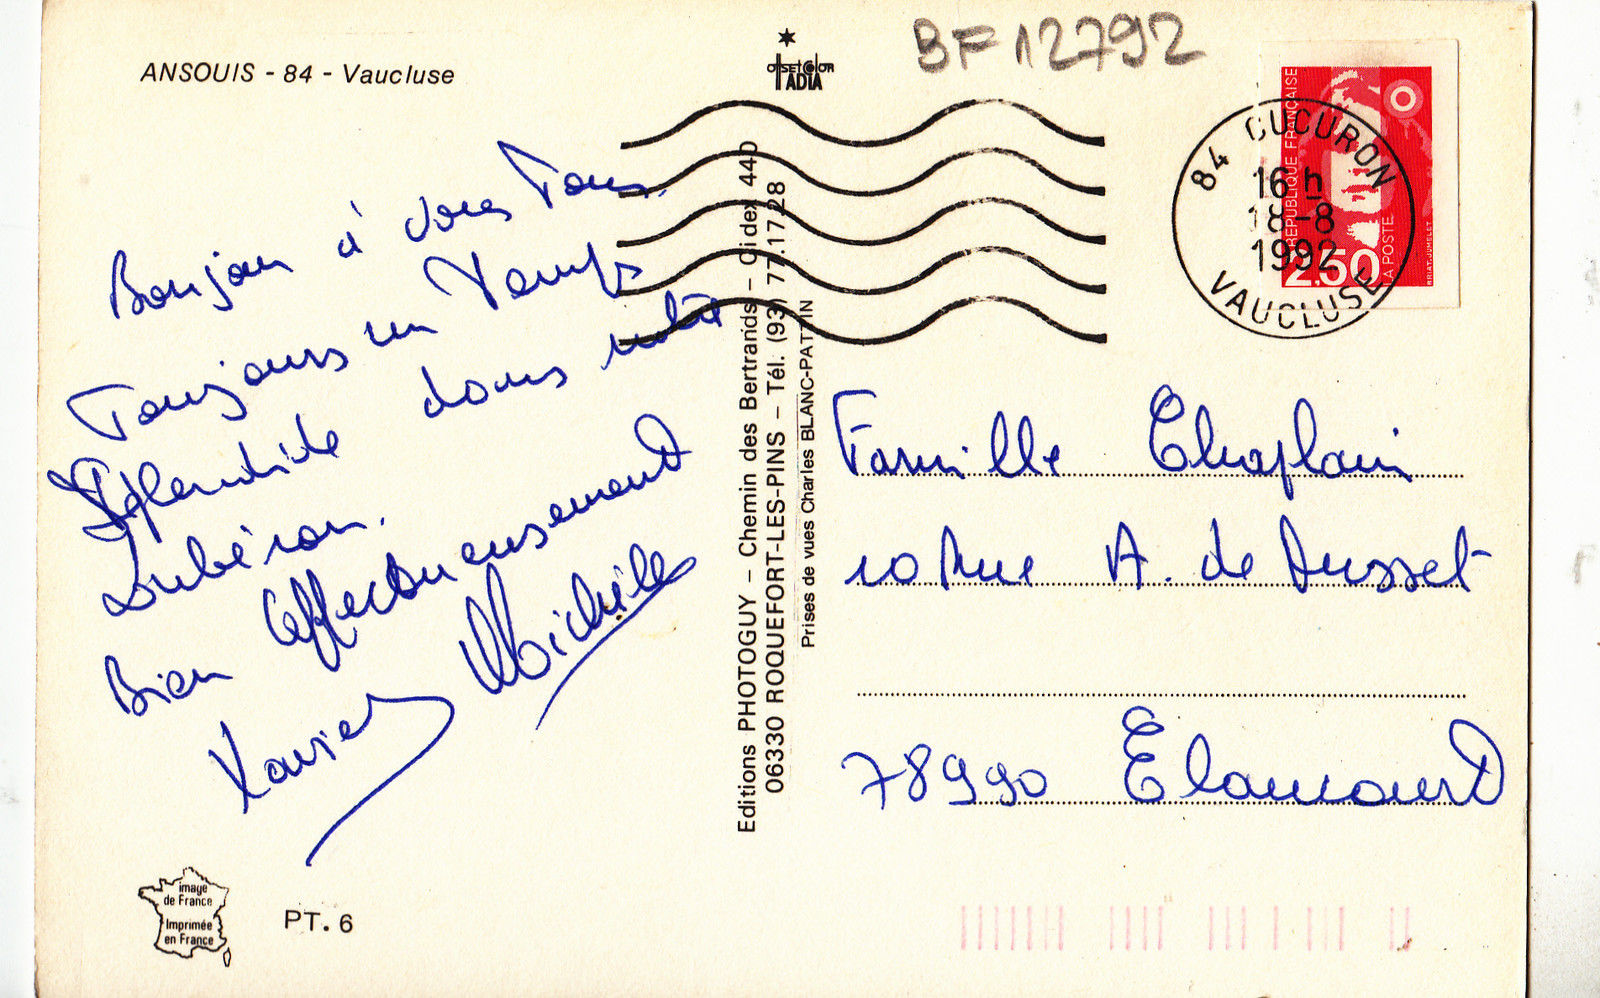 ANSOUIS - 84 - Vaucluse
OFFSETCOLOR
ADIA
BF 12792
RÉPUBLIQUE FRANÇAISE
LA POSTE
2.50
84 CUCURON
16 h
18-8
1992
VAUCLUSE
Bonjour à vous Tous.
Toujours un Temps
Splendide dans notre
Lubéron.
Bien affectueusement
Xavier Michèle
Editions PHOTOGUY – Chemin des Bertrands – Cidex 440
06330 ROQUEFORT-LES-PINS – Tél. (93) 77.17.28
Prises de vues Charles BLANC-PATTIN
Famille Chaplain
10 Rue A. de Musset
78990 Elancourt
image
de France
Imprimée
en France
PT. 6